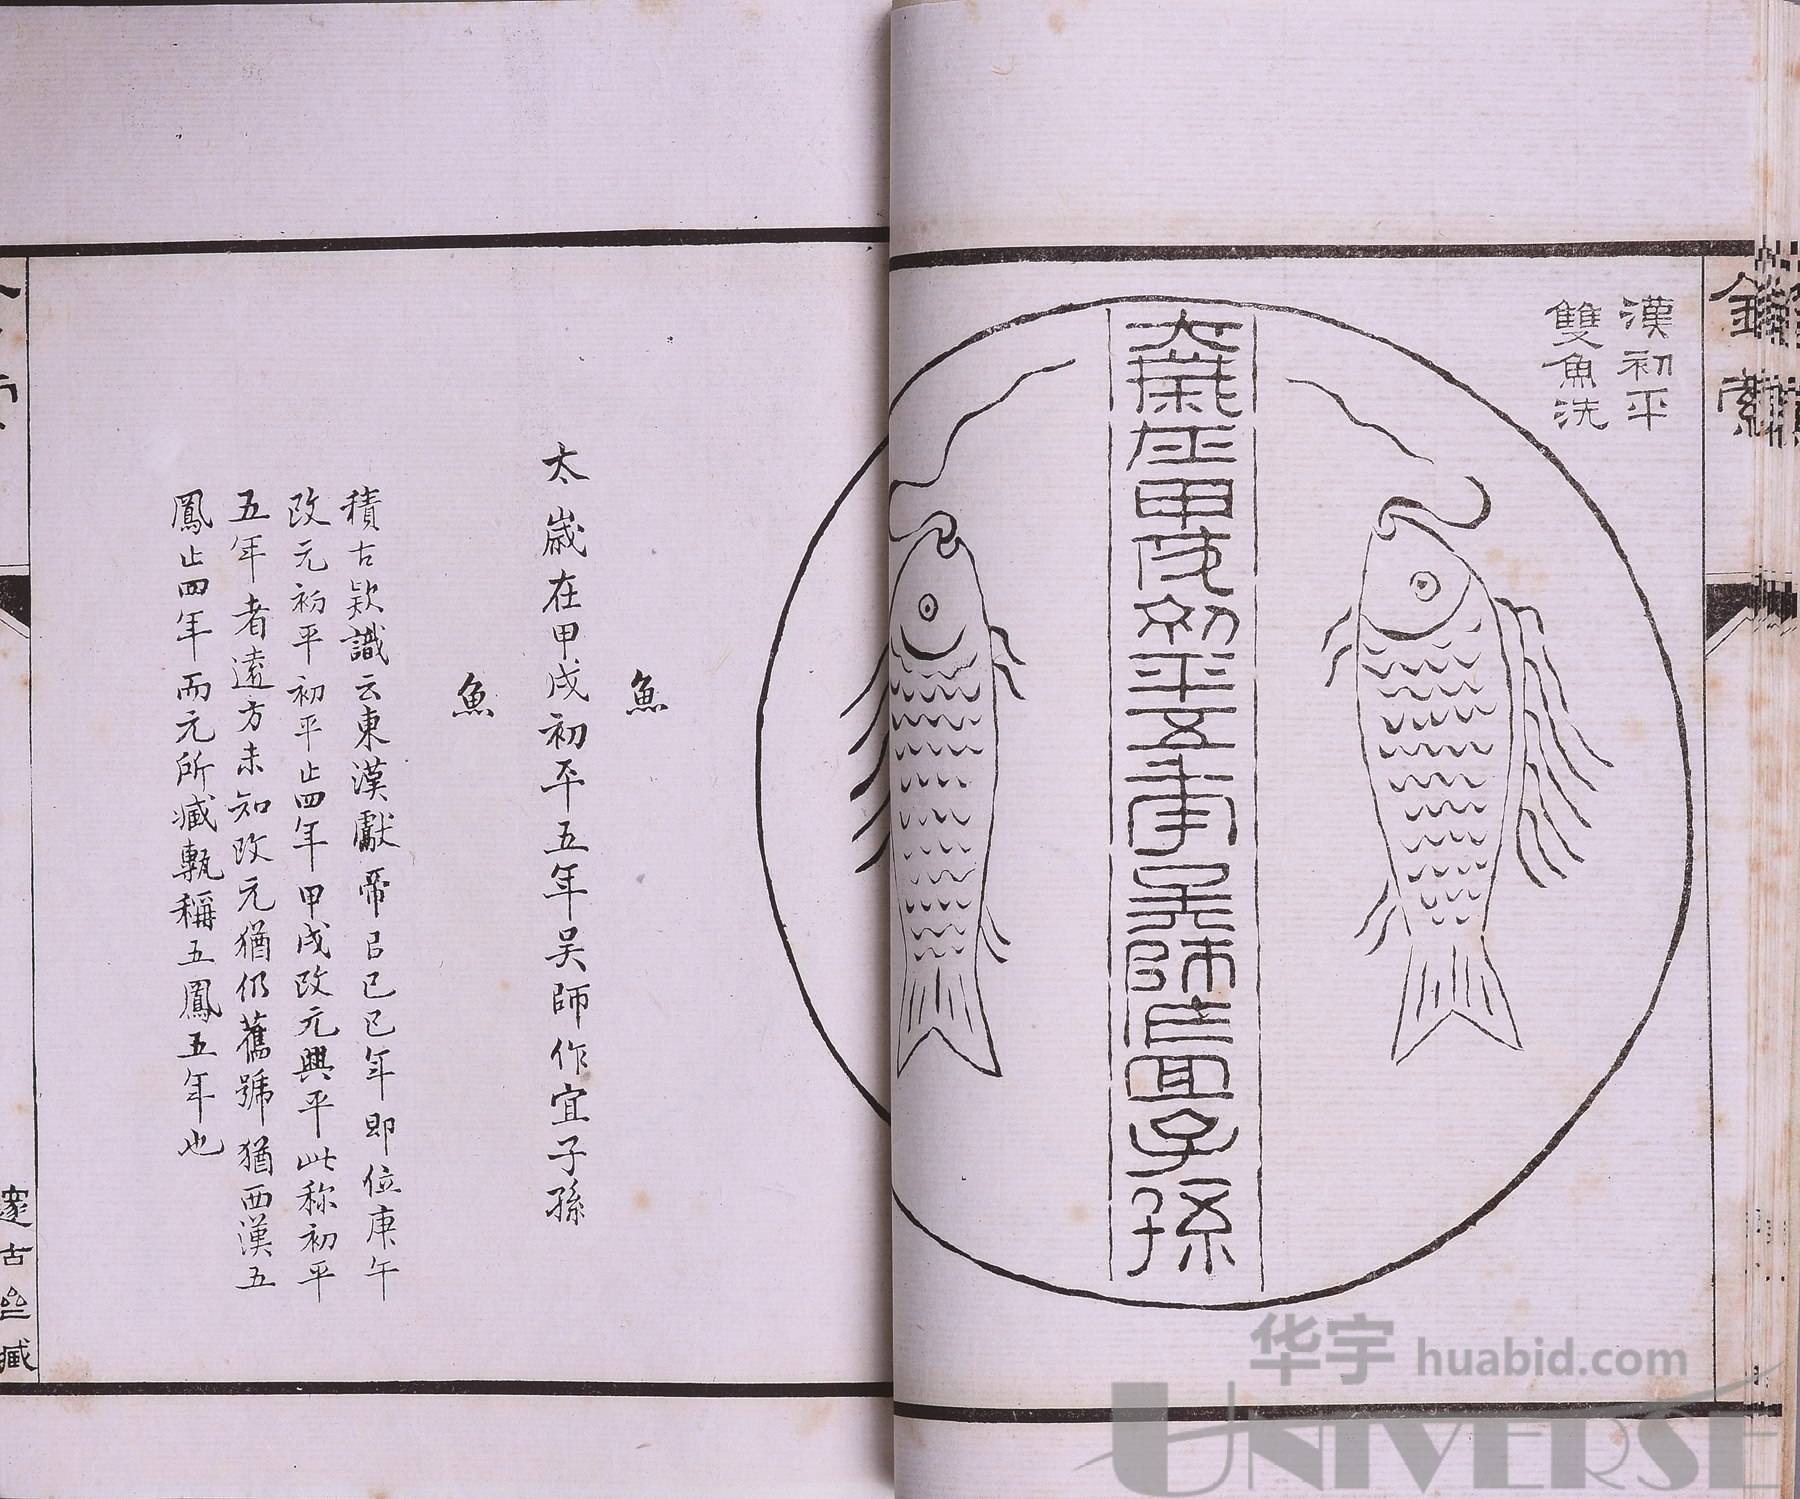 金索
漢初平
雙魚洗
太歲在甲戌初平五年吳師作宜子孫
魚
太歲在甲戌初平五年吳師作宜子孫
魚
積古欵識云東漢獻帝以己巳年即位庚午
改元初平初平止四年甲戌改元興平此称初平
五年者遠方未知改元猶仍舊號猶西漢五
鳳止四年而元所臧甎稱五鳳五年也
邃古齋臧
华宇 huabid.com
UNIVERSE